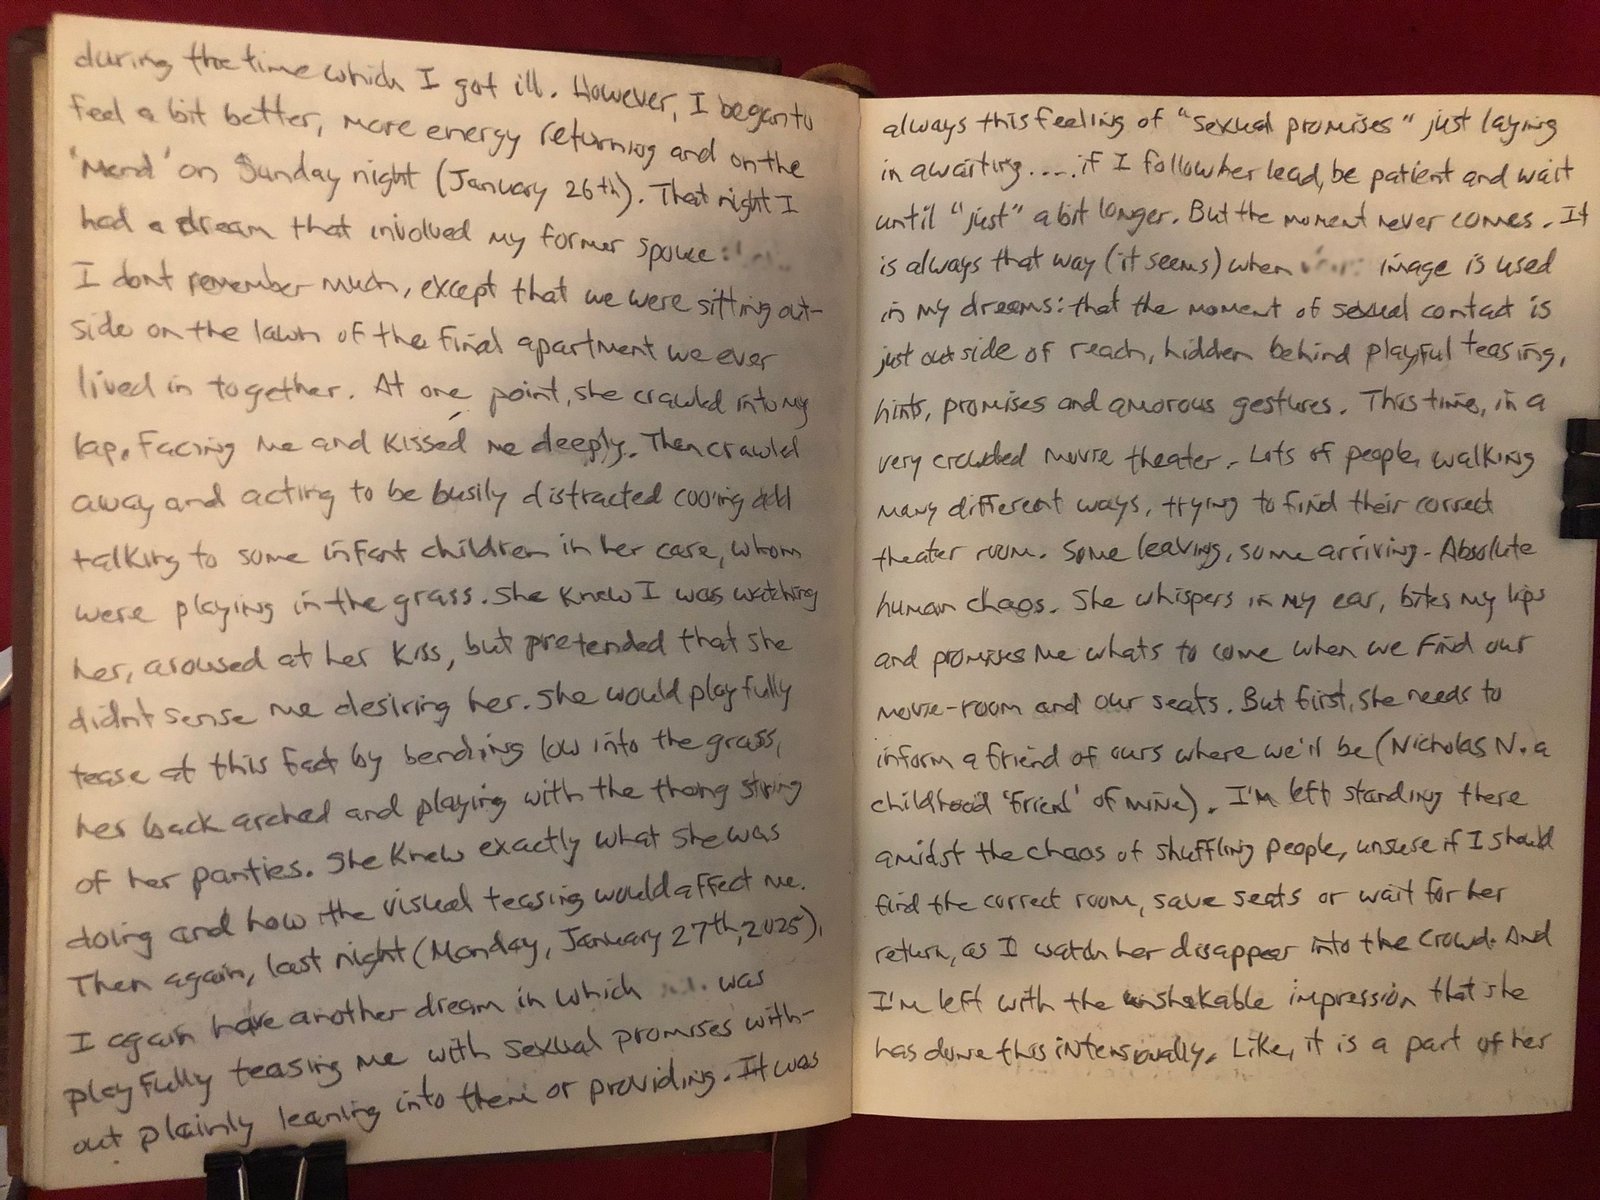 during the time which I got ill. However, I began to
feel a bit better, more energy returning and on the
'Mend' on Sunday night (January 26th). That night I
had a dream that involved my former spouse:
I dont remember much, except that we were sitting out-
side on the lawn of the final apartment we ever
lived in together. At one point, she crawled into my
lap, facing me and kissed me deeply. Then crawled
away and acting to be busily distracted cooing add
talking to some infant children in her care, whom
were playing in the grass. She knew I was watching
her, aroused at her kiss, but pretended that she
didn't sense me desiring her. She would playfully
tease at this fact by bending low into the grass,
her back arched and playing with the thong string
of her panties. She knew exactly what she was
doing and how the visual teasing would affect me.
Then again, last night (Monday, January 27th, 2025),
I again have another dream in which was
playfully teasing me with sexual promises with-
out plainly leaning into them or providing. It was
always this feeling of "sexual promises" just laying
in awaiting.....if I follow her lead, be patient and wait
until "just" a bit longer. But the moment never comes. It
is always that way (it seems) when image is used
in my dreams: that the moment of sexual contact is
just outside of reach, hidden behind playful teasing,
hints, promises and amorous gestures. This time, in a
very crowded movie theater. Lots of people, walking
many different ways, trying to find their correct
theater room. Some leaving, some arriving. Absolute
human chaos. She whispers in my ear, bites my lips
and promises me whats to come when we find our
movie-room and our seats. But first, she needs to
inform a friend of ours where we'll be (Nicholas N. a
childhood 'friend' of mine). I'm left standing there
amidst the chaos of shuffling people, unsure if I should
find the correct room, save seats or wait for her
return, as I watch her disappear into the crowd. And
I'm left with the unshakable impression that she
has done this intensionally. Like, it is a part of her